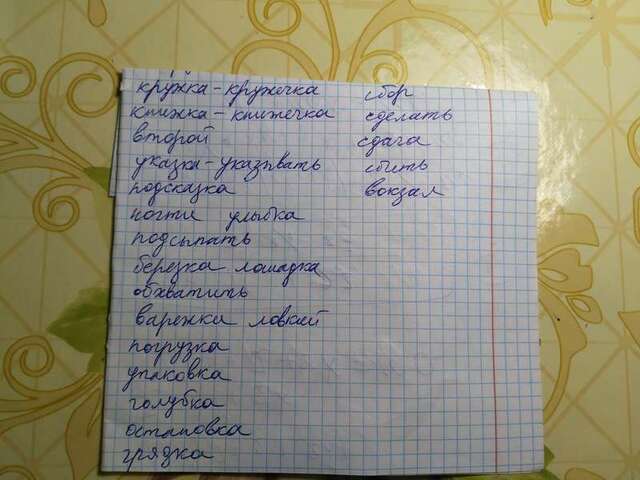 кружка - кружечка
книжка - книжечка
второй
указка - указывать
подсказка
ногти улыбка
подсыпать
березка лошадка
обхватить
варежки ловкий
погрузка
упаковка
голубка
остановка
грядка
сбор
сделать
сдага
сбить
вокзал